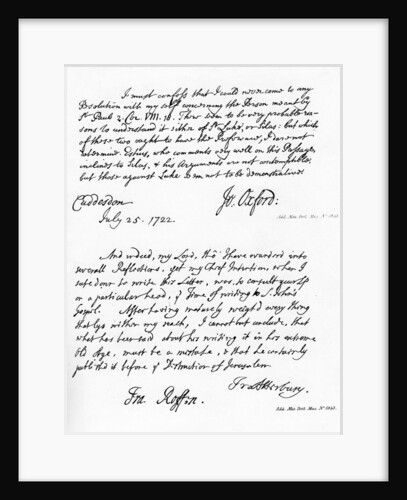 I must confess that I could never come to any
Resolution with my self concerning the Person meant by
St Paul 2. Cor. VIII. 18. There seem to be very probable rea-
sons to understand it either of St Luke, or Silas: but which
of these two ought to have the Preference, I dare not
determine. Estius, who comments very well on this Passage,
inclines to Silas, & his Arguments are not contemptible:
but those against Luke seem not to be demonstrative.
Cuddesdon
Jo. Oxford:
July 25. 1722.
Add. Mss. Brit. Mus. No
And indeed, my Lord, tho' I have wander'd into
severall Reflections, yet my Chief Intention, when I
sate down to write this Letter, was, to consult yourself
on a particular head, ye Time of writing St. John's
Gospel. After having maturely weigh'd every thing
that lys within my reach, I cannot but conclude, that
what has been said about his writing it in his extreme
old Age, must be a mistake, & that he certainly
publish'd it before ye Destruction of Jerusalem
Fr Atterbury.
Fra. Roffen.
Add. Mss. Brit. Mus. No